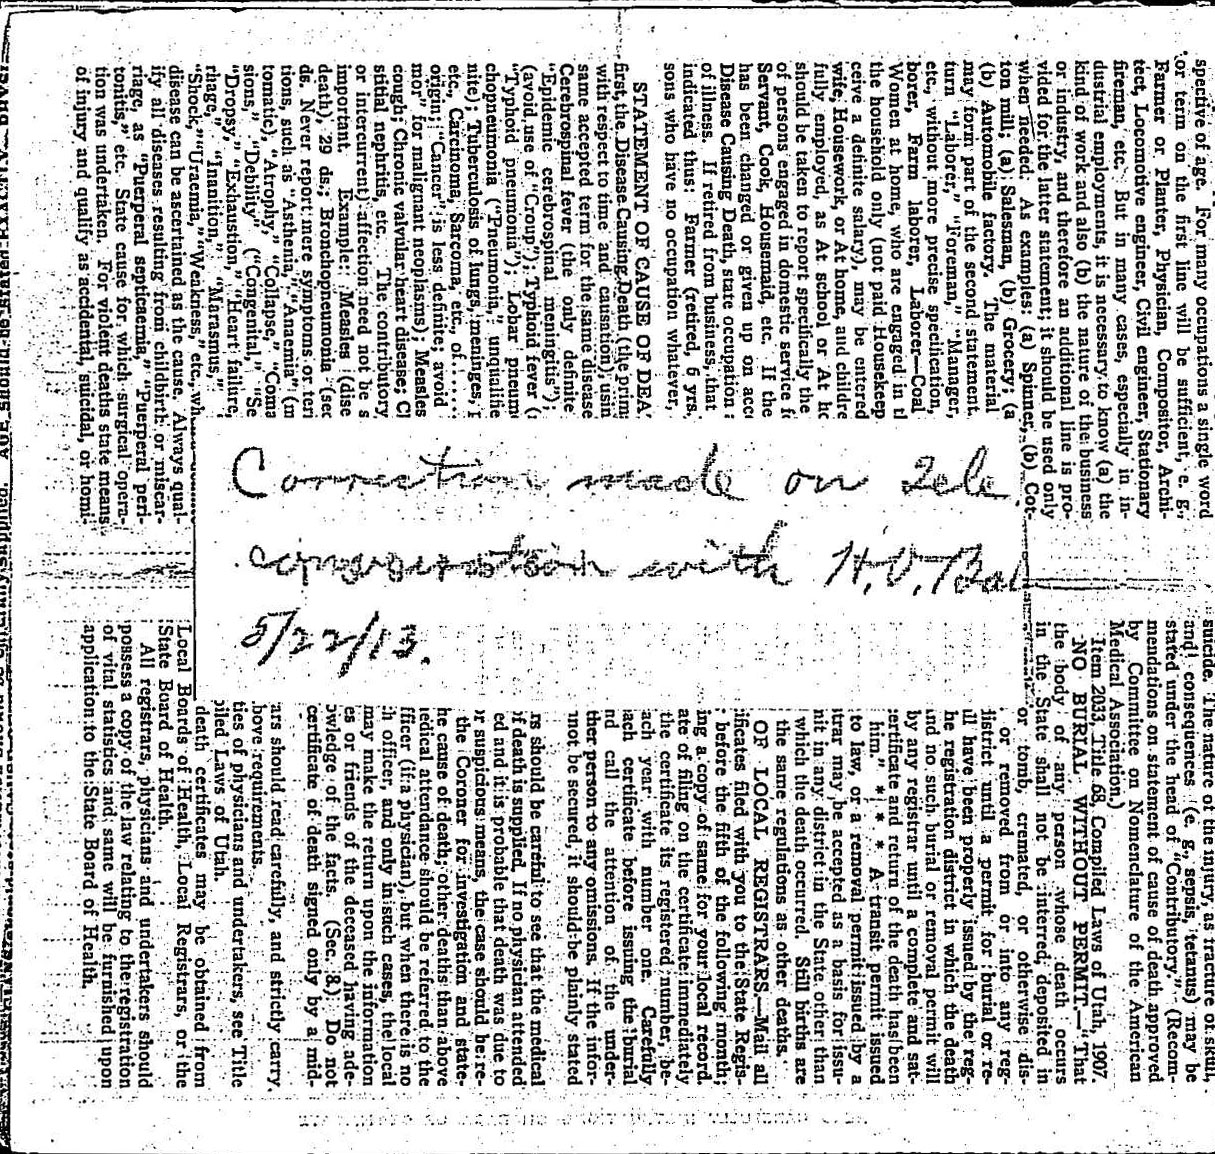 spective of age. For many occupations a single word
or term on the first line will be sufficient, e. g.,
Farmer or Planter, Physician, Compositor, Archi-
tect, Locomotive engineer, Civil engineer, Stationary
fireman, etc. But in many cases, especially in in-
dustrial employments, it is necessary to know (a) the
kind of work and also (b) the nature of the business
or industry, and therefore an additional line is pro-
vided for the latter statement; it should be used only
when needed. As examples: (a) Spinner, (b) Cot-
ton mill; (a) Salesman, (b) Grocery; (a
(b) Automobile factory. The material
may form part of the second statement.
turn "Laborer," "Foreman," "Manager,
etc., without more precise specification,
borer, Farm laborer, Laborer—Coal
Women at home, who are engaged in tl
the household only (not paid Housekeep
ceive a definite salary), may be entered
wife, Housework, or At home, and childre
fully employed, as At school or At ho
should be taken to report specifically the
of persons engaged in domestic service fo
Servant, Cook, Housemaid, etc. If the
has been changed or given up on acco
Disease Causing Death, state occupation
of illness. If retired from business, that
indicated thus: Farmer (retired, 6 yrs.
sons who have no occupation whatever,
STATEMENT OF CAUSE OF DEA
first, the Disease Causing Death (the prim
with respect to time and causation), usin
same accepted term for the same disease
Cerebrospinal fever (the only definite
"Epidemic cerebrospinal meningitis");
(avoid use of "Croup"); Typhoid fever (
"Typhoid pneumonia"); Lobar pneum
chopneumonia ("Pneumonia," unqualifie
nite); Tuberculosis of lungs, meninges, p
etc., Carcinoma, Sarcoma, etc., of . . . . .
origin; "Cancer" is less definite; avoid
mor" for malignant neoplasms) Measles
cough; Chronic valvular heart disease; Cl
stitial nephritis, etc. The contributory
or intercurrent) affection need not be s
important. Example: Measles (dise
death), 29 ds.; Bronchopneumonia (sec
ds. Never report mere symptoms or ter
tions, such as "Asthenia," "Anaemia" (m
tomatic), "Atrophy," "Collapse," "Coma
sions," "Debility" ("Congenital," "Se
"Dropsy," "Exhaustion," "Heart failure,
rhage," "Inanition," "Marasmus,"
"Shock," "Uraemia," "Weakness," etc., wh
disease can be ascertained as the cause. Always qual-
ify all diseases resulting from childbirth or miscar-
riage, as "Puerperal septicaemia," "Puerperal peri-
tonitis," etc. State cause for which surgical opera-
tion was undertaken. For violent deaths state means
of injury and qualify as accidental, suicidal, or homi-
Correction made on Tele
conversation with H.V. Bal
5/22/13.
suicide. The nature of the injury, as fracture of skull,
and consequences (e. g., sepsis, tetanus) may be
stated under the head of "Contributory." (Recom-
mendations on statement of cause of death approved
by Committee on Nomenclature of the American
Medical Association.)
Item 2033, Title 68, Compiled Laws of Utah, 1907.
NO BURIAL WITHOUT PERMIT.—"That
the body of any person whose death occurs
in the State shall not be interred, deposited in
or tomb, cremated, or otherwise dis-
or removed from or into any reg-
district until a permit for burial or re-
ll have been properly issued by the reg-
he registration district in which the death
nd no such burial or removal permit will
by any registrar until a complete and sat-
ertificate and return of the death has been
him." * * * A transit permit issued
to law, or a removal permit issued by a
strar may be accepted as a basis for issu-
mit in any district in the State other than
which the death occurred. Still births are
the same regulations as other deaths.
OF LOCAL REGISTRARS.—Mail all
ificates filed with you to the State Regis-
before the fifth of the following month;
ing a copy of same for your local record.
ate of filing on the certificate immediately
the certificate its registered number, be-
ach year with number one. Carefully
ach certificate before issuing the burial
nd call the attention of the under-
ther person to any omissions. If the infor-
not be secured, it should be plainly stated
rs should be careful to see that the medical
of death is supplied. If no physician attended
ed and it is probable that death was due to
r suspicious means, the case should be re-
the Coroner for investigation and state-
he cause of death; other deaths than above
edical attendance should be referred to the
fficer (if a physician), but when there is no
h officer, and only in such cases, the local
may make the return upon the information
es or friends of the deceased having ade-
owledge of the facts. (Sec. 8.) Do not
certificate of death signed only by a mid-
ars should read carefully, and strictly carry
bove requirements.
ties of physicians and undertakers, see Title
piled Laws of Utah.
death certificates may be obtained from
Local Boards of Health, Local Registrars, or the
State Board of Health.
All registrars, physicians and undertakers should
possess a copy of the law relating to the registration
of vital statistics and same will be furnished upon
application to the State Board of Health.